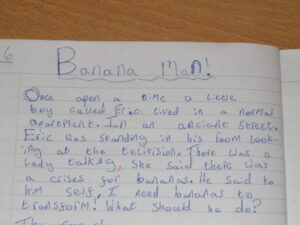 6
Banana Man!
Once upon a time a little
boy called Eric lived in a normal
apartment. In an ancient street.
Eric was standing in his room look-
ing at the telivision. There was a
lady talking, she said there was
a crises for bananas. He said to
him self, I need bananas to
transform! What should he do?